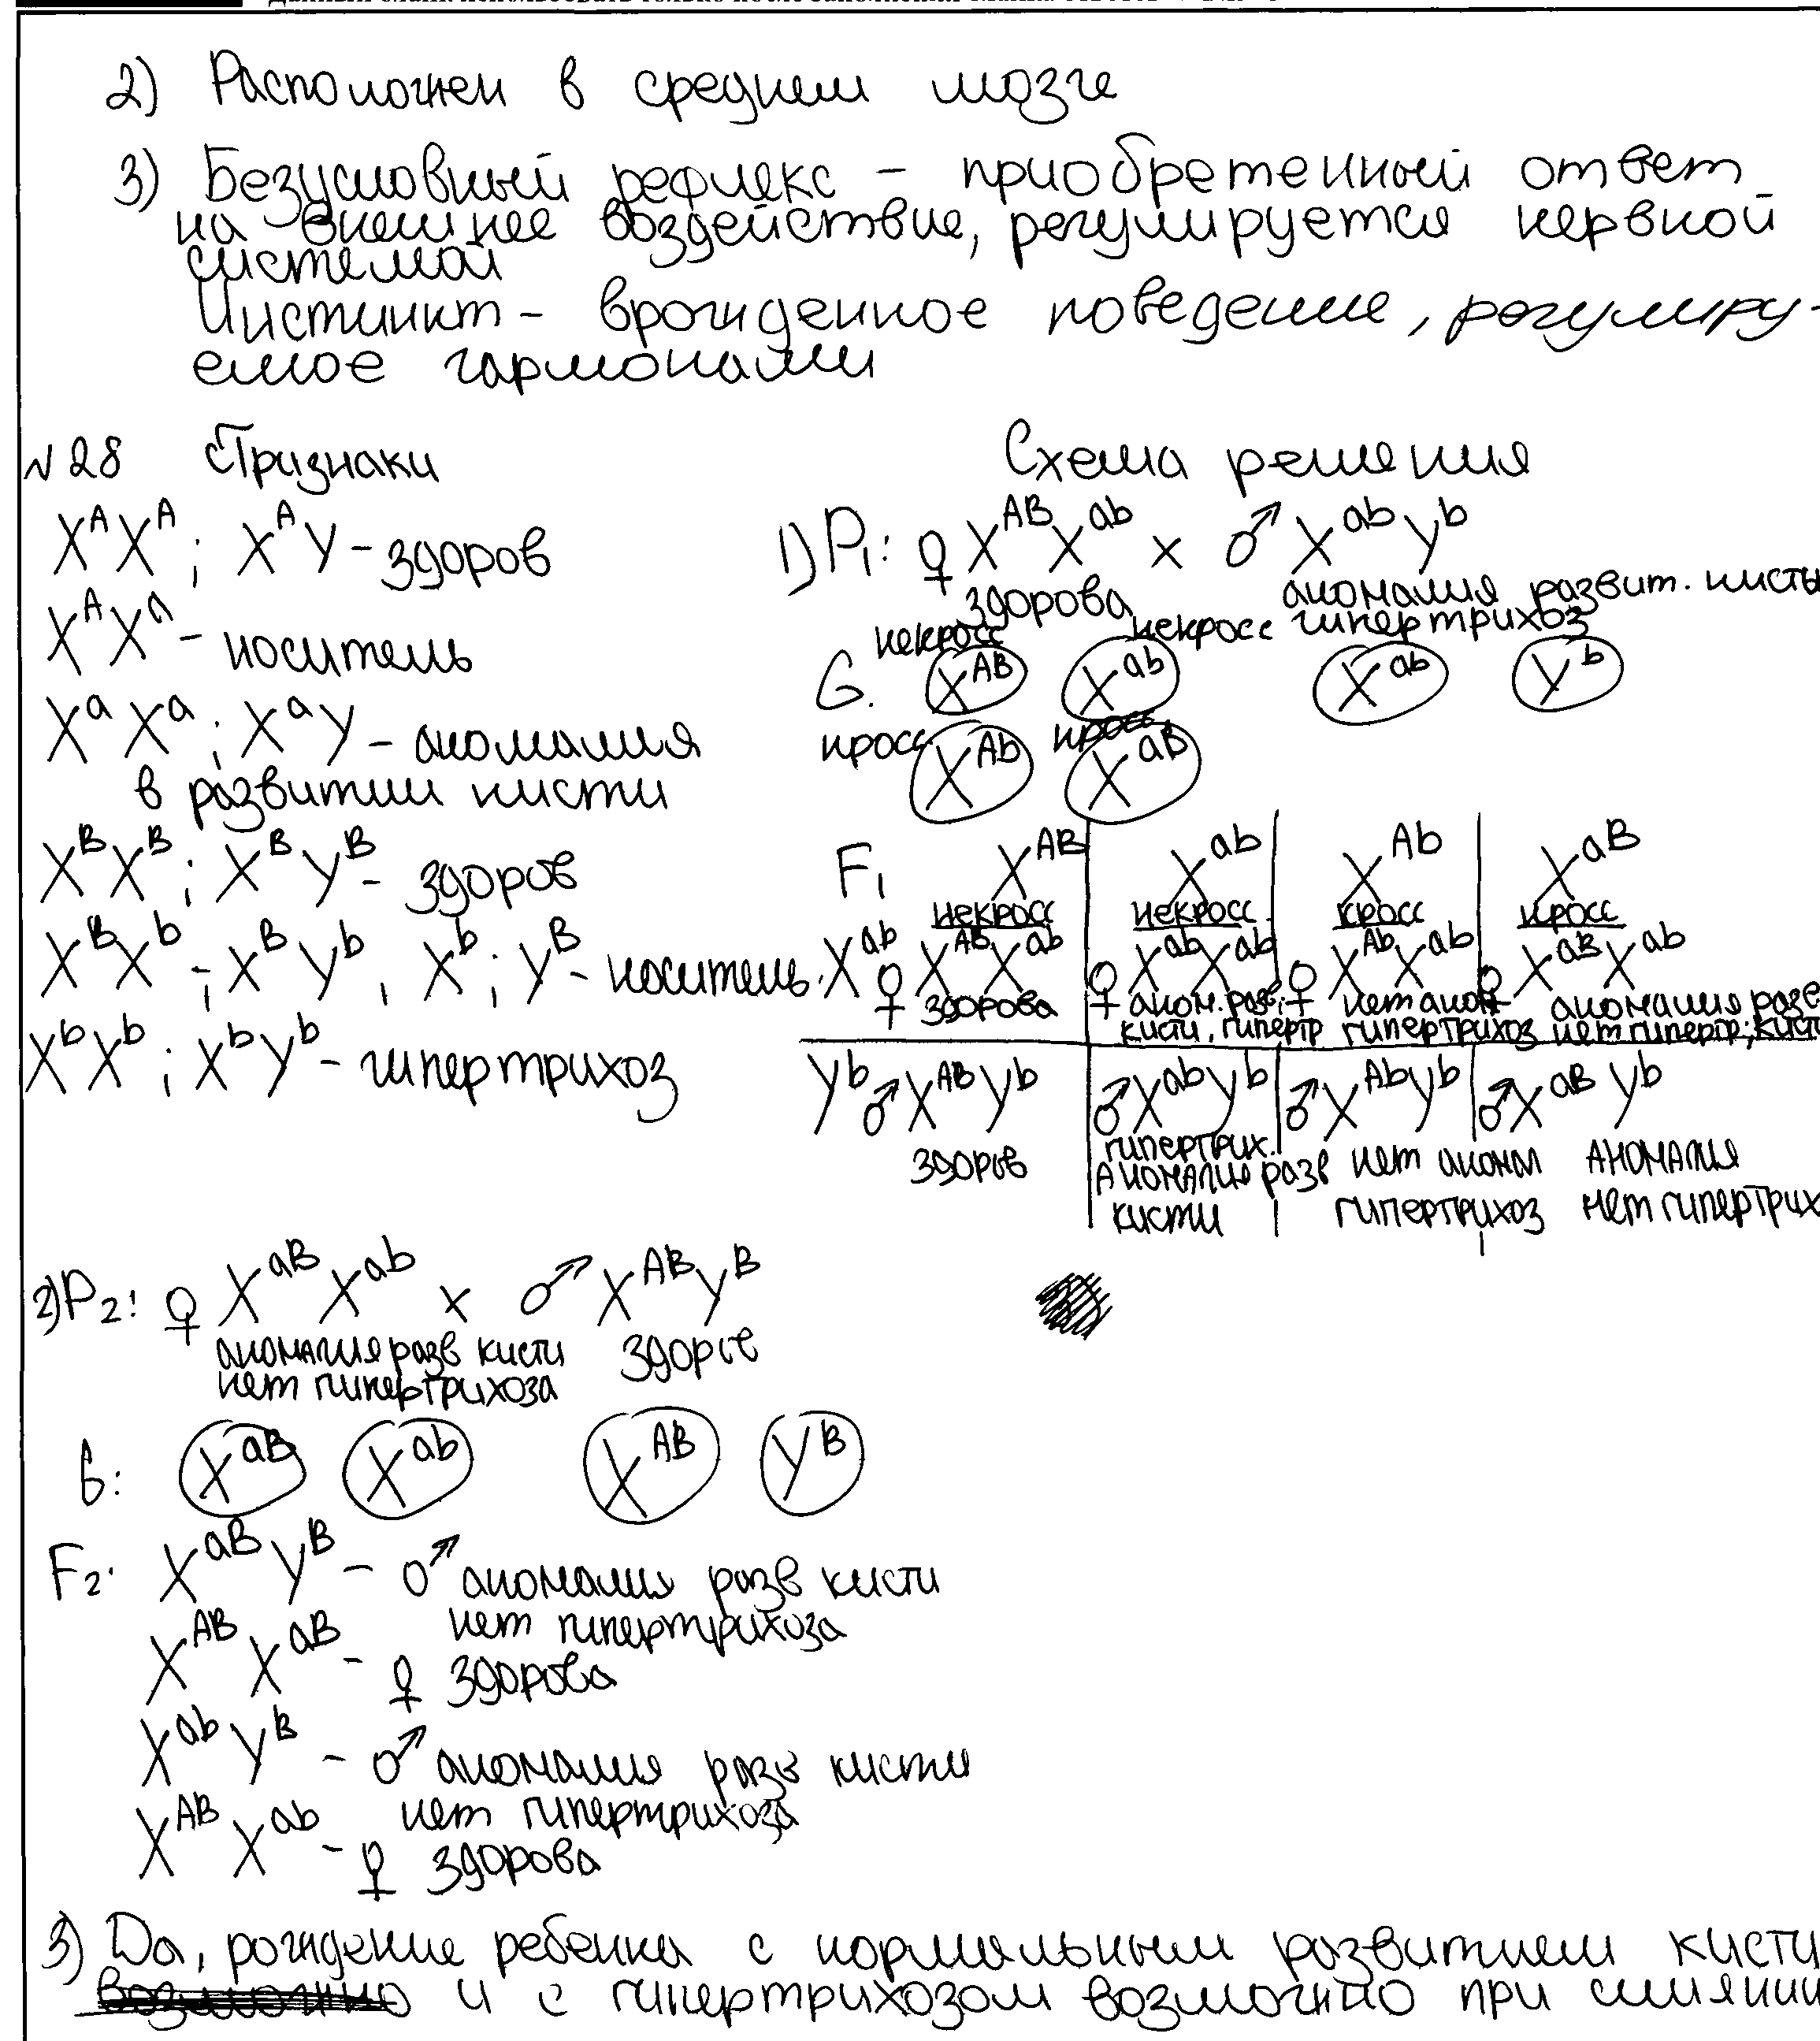 2) Расположен в среднем мозге
3) Безусловный рефлекс - приобретенный ответ
на внешнее воздействие, регулируется нервной
системой
Инстинкт - врожденное поведение, регулиру-
емое гармонами
№28 Признаки
X^A X^A ; X^A Y - здоров
X^A X^a - носитель
X^a X^a ; X^a Y - аномалия
в развитии кисти
X^B X^B ; X^B Y^B - здоров
X^B X^b ; X^B Y^b , X^b ; Y^B - носитель
X^b X^b ; X^b Y^b - гипертрихоз
Схема решения
1) P₁: ♀ X^AB X^ab x ♂ X^ab Y^b
здорова аномалия развит. кисты
гипертрихоз
некросс некросс
G. X^AB X^ab X^ab Y^b
кросс кросс
X^Ab X^aB
F₁ X^AB X^ab X^Ab X^aB
некросс некросс кросс кросс
X^ab ♀ X^AB X^ab ♀ X^ab X^ab ♀ X^Ab X^ab ♀ X^aB X^ab
здорова аном. разв. нет аном аномалия разв
кисти, гипертр гипертрихоз нет гипертр; кисти
Y^b ♂ X^AB Y^b ♂ X^ab Y^b ♂ X^Ab Y^b ♂ X^aB Y^b
здоров гипертрих. нет аномал аномалия
Аномалия разв гипертрихоз нет гипертрих
кисти
2) P₂: ♀ X^aB X^ab x ♂ X^AB Y^B
аномалия разв кисти здоров
нет гипертрихоза
G: X^aB X^ab X^AB Y^B
F₂: X^aB Y^B - ♂ аномалия разв кисти
нет гипертрихоза
X^AB X^aB - ♀ здорова
X^ab Y^B - ♂ аномалия разв кисти
нет гипертрихоза
X^AB X^ab - ♀ здорова
3) Да, рождение ребенка с нормальным развитием кисти
возможно и с гипертрихозом возможно при слиянии